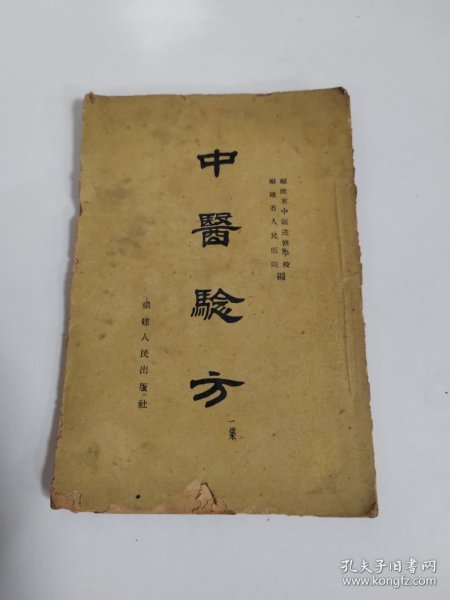 福建省中医进修学校
福建省人民医院
编
中醫驗方
一集
福建人民出版社
孔夫子旧书网
www.kongfz.com